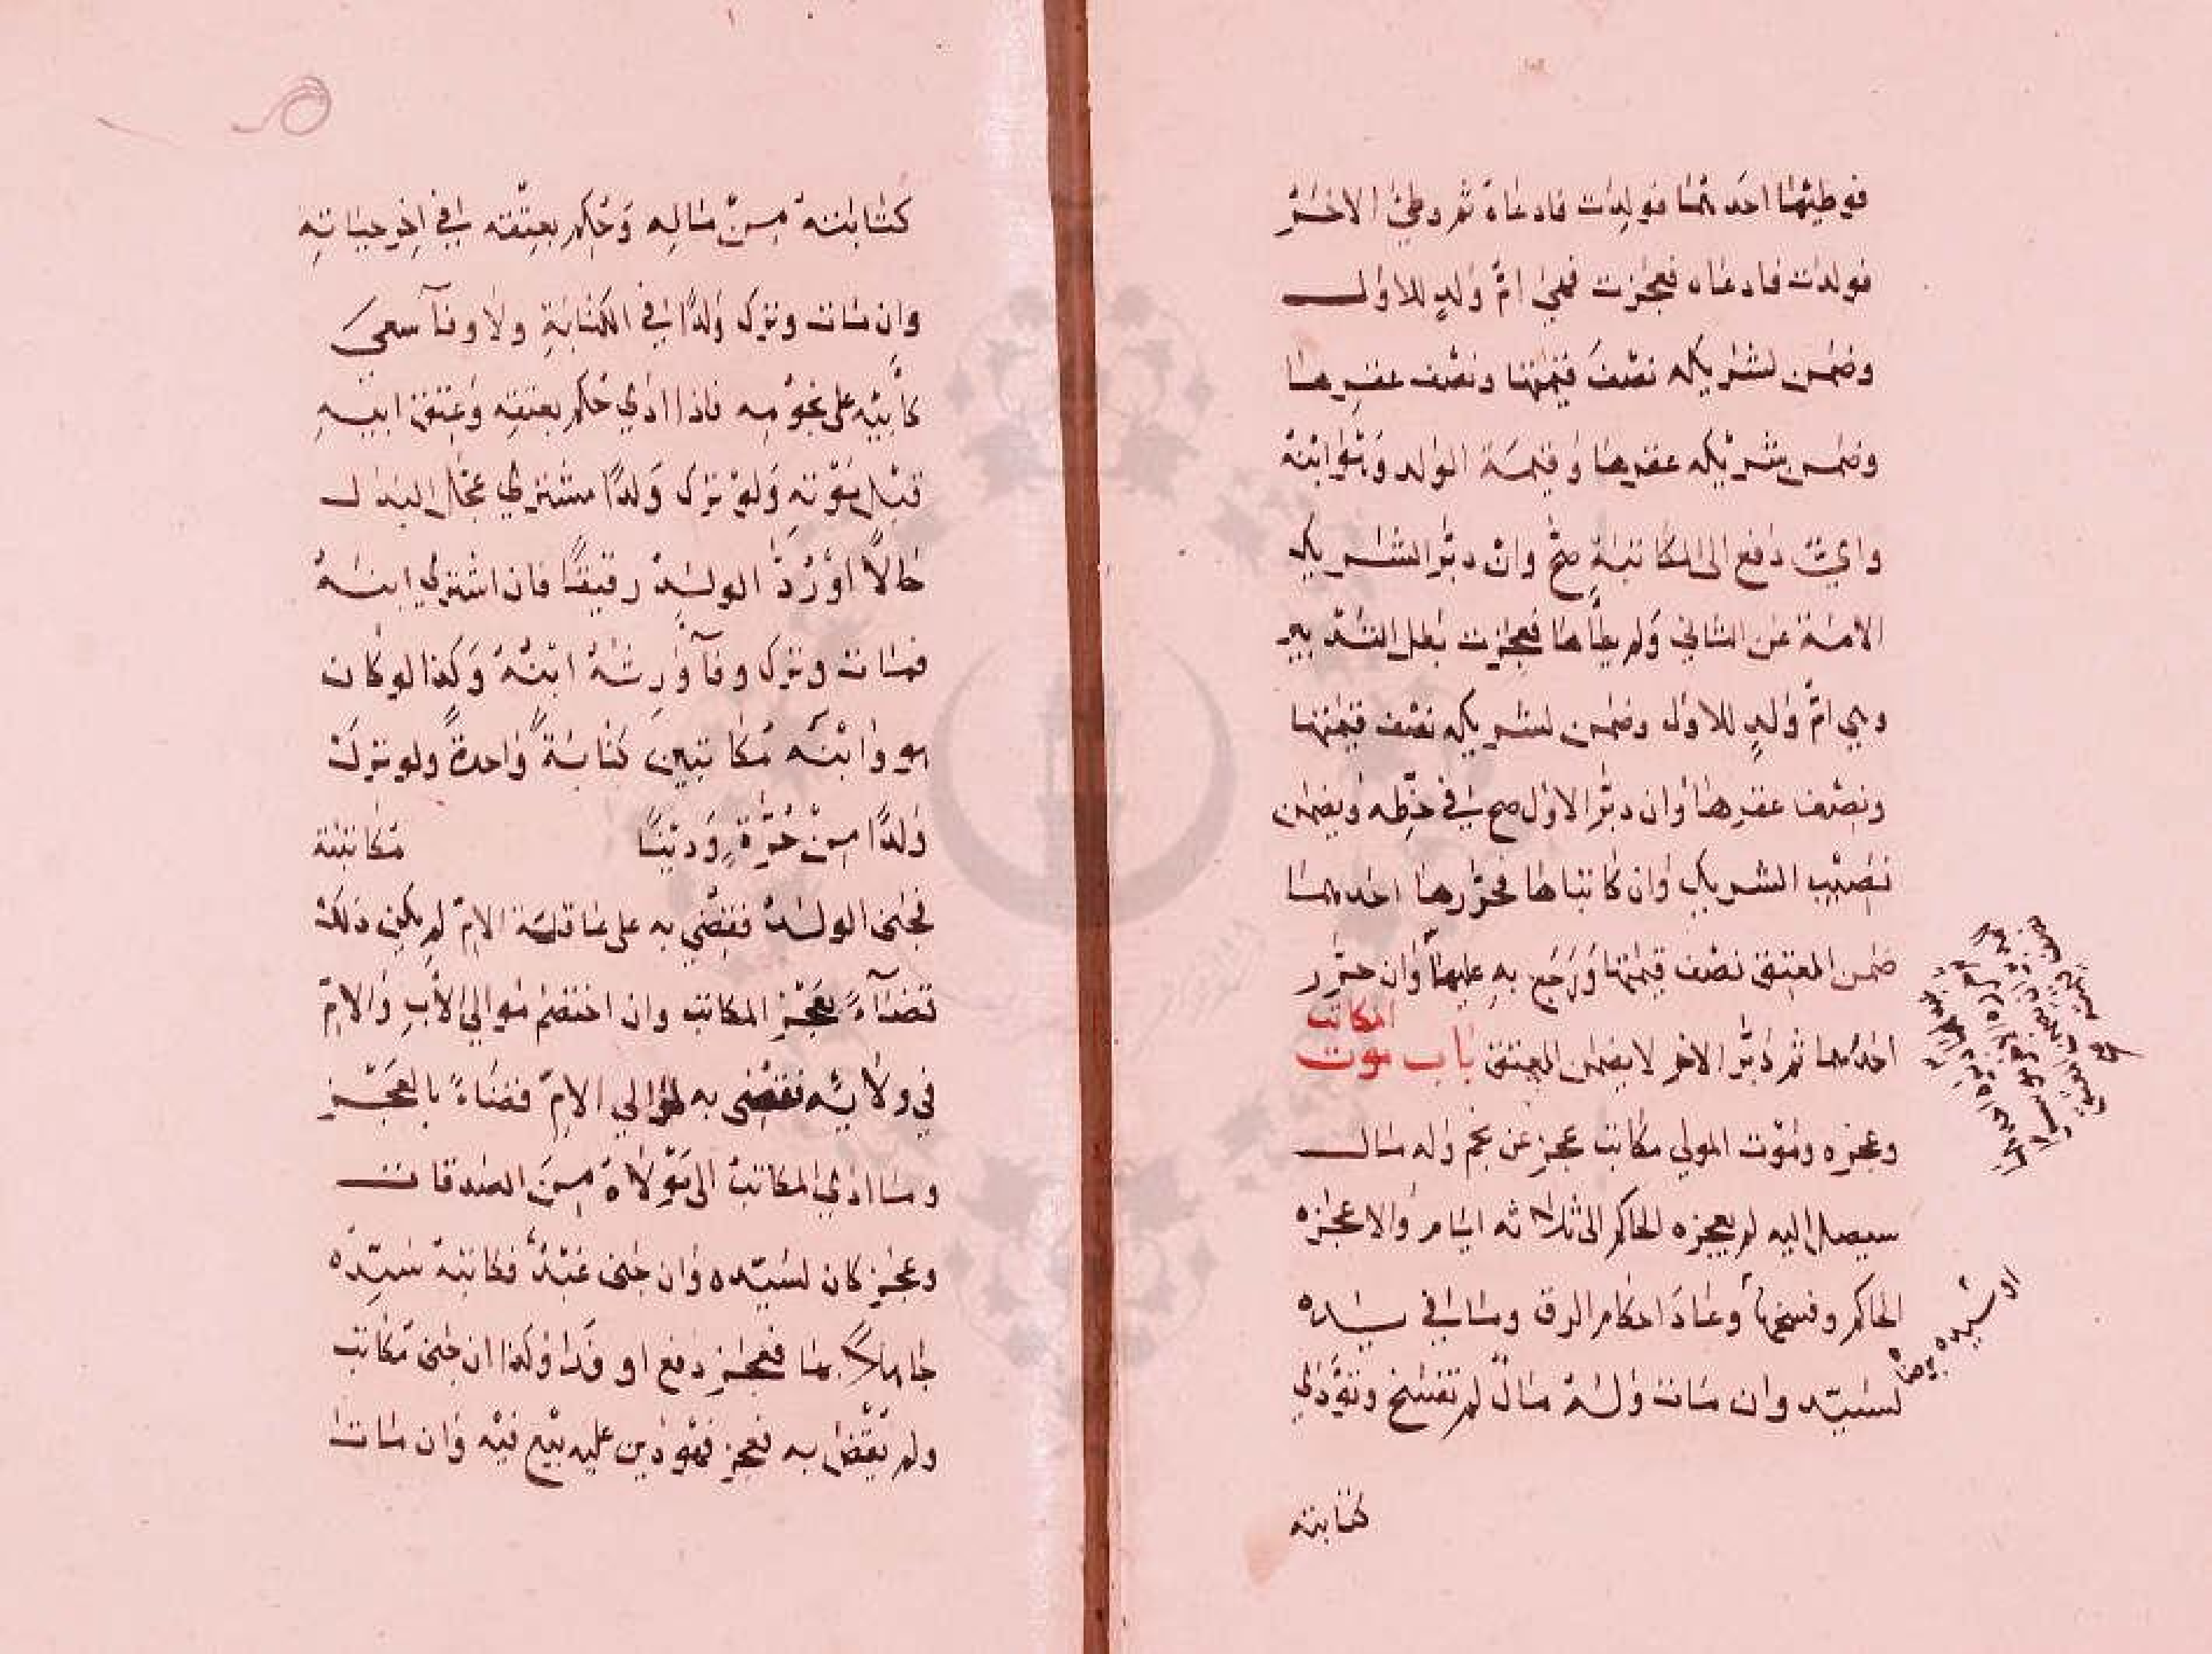 فوطئها احدهما فولدت فادعاه ثم وطئ الاخر
فولدت فادعاه فعجزت فهي امّ ولدٍ للاول
وضمن لشريكه نصف قيمتها ونصف عقرها
وضمن شريكه عقرها وقيمة الولد وهو ابنه
واي دفع الى المكاتبة صح وان دبّر الشريك
الامة عن الثاني ولم يطأها فعجزت بطل التدبير
وهي امّ ولدٍ للاول وضمن لشريكه نصف قيمتها
ونصف عقرها وان دبّر الاول صح في حظه ويضمن
نصيب الشريك وان كاتباها فحرّرها احدهما
ضمن المعتق نصف قيمتها ورجع به عليها وان حرّر
احدهما ثم دبّر الاخر لا يضمن المعتق باب موت
المكاتب
وعجزه وموت المولي مكاتب عجز عن نجم وله مال
سيصل اليه لم يعجزه الحاكم الى ثلاثه ايام والا عجزه
الحاكم وفسخها وعاد احكام الرق وما في يده
او سيده برضاه
لسيّده وان مات وله مال لم تفسخ وتودّي
كتابته
كتابته من ماله وحُكِم بعتقه في اخر حياته
وان مات وترك ولدًا في الكتابة ولا وفآ سعى
كأبيه على نجومه فاذا ادي حُكم بعتقه وعتق ابيه
قبل موته ولو ترك ولدًا مشتري عجّل البدل
حالًا او رُدّ الولد رقيقًا فان اشتري ابنه
فمات وترك وفآ ورثه ابنه وكذا لو كان
هو وابنه مكاتبين كتابةً واحدةً ولو ترك
ولدًا من حُرّةٍ ودينًا مكاتبته
فجنى الولد فقضي به على عاقلة الام لم يكن ذلك
قضآءً بعجز المكاتب وان اختصم موالي الاب والامّ
في ولائه فقضى به لموالي الامّ فقضاءً بالعجز
وما ادي المكاتب الى مولاه من الصدقات
وعجز كان لسيّده وان جنى عبدٌ فكاتبه سيّده
جاهلًا بها فعجز دفع او فدا وكذا ان جنى مكاتب
ولم يُقض به فعجز فهو دين عليه بيع فيه وان مات